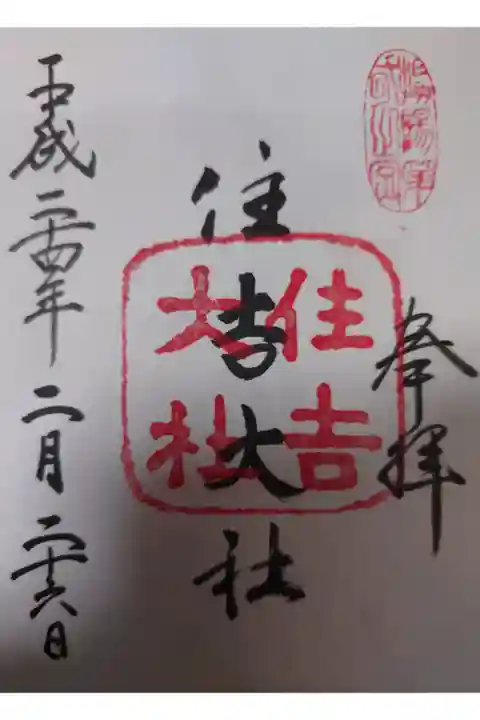 奉拝
住吉大社
住吉大社
平成二十四年二月二十六日